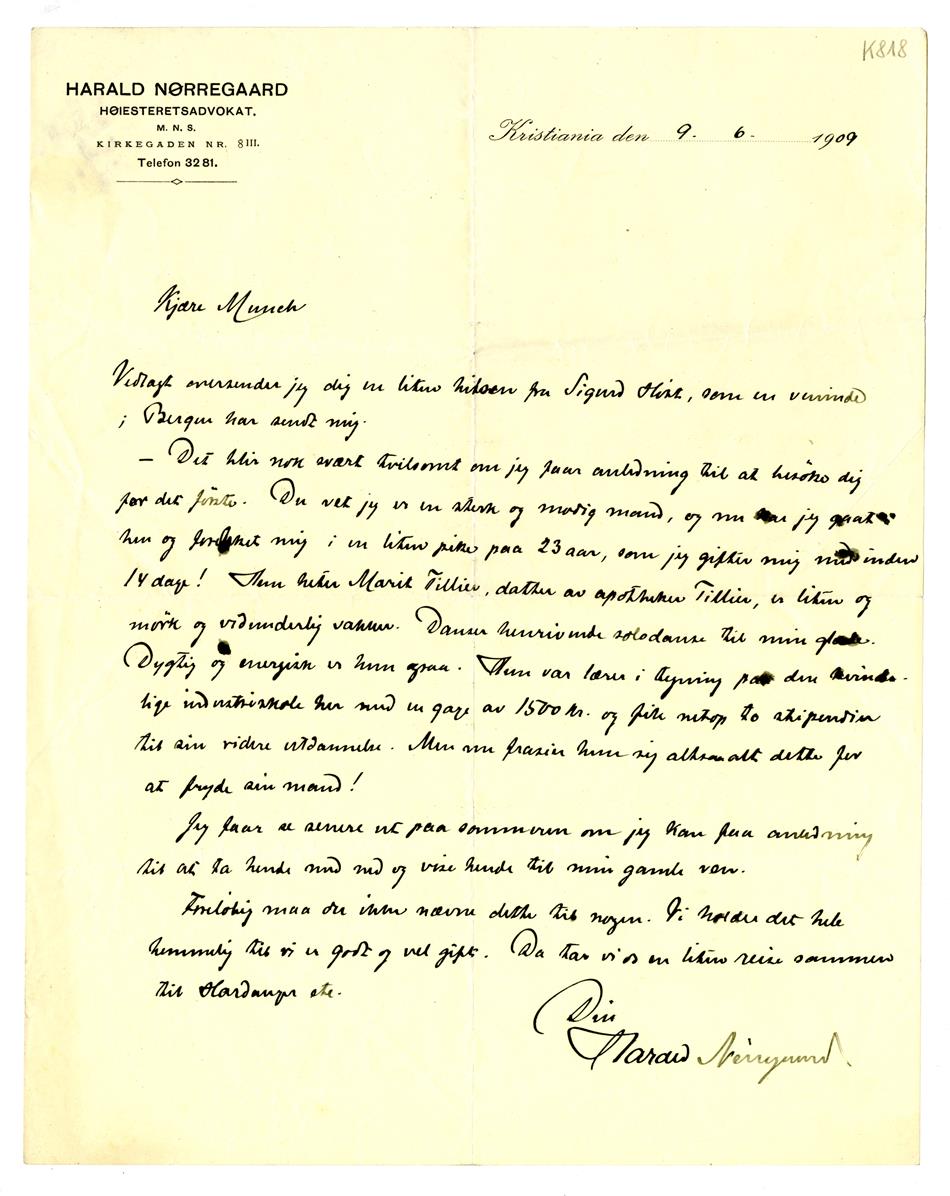 K818
HARALD NØRREGAARD
HØIESTERETSADVOKAT.
M. N. S.
KIRKEGADEN NR. 8 III.
Telefon 3281.
Kristiania den 9. 6. 1909
Kjære Munch
Vedlagt oversender jeg dig en liten hilsen fra Sigurd Høst, som en veninde
i Bergen har sendt mig.
– Det blir nok svært tvilsomt om jeg faar anledning til at besøke dig
for det første. Du vet jeg er en sterk og modig mand, og nu har jeg gaat
hen og forelsket mig i en liten pike paa 23 aar, som jeg gifter mig med inden
14 dage! Hun heter Marit Tillier, datter av apotheker Tillier, er liten og
mørk og vidunderlig vakker. Danser henrivende solodanse til min glæde.
Dygtig og energisk er hun ogsaa. Hun var lærer i tegning paa den kvinde-
lige industriskole her med en gage av 1500 kr. og fik netop to stipendier
til sin videre utdannelse. Men nu frasier hun sig altsaa alt dette for
at fryde sin mand!
Jeg faar se senere ut paa sommeren om jeg kan faa anledning
til at ta hende med ned og vise hende til min gamle ven.
Foreløbig maa du ikke nævne dette til nogen. Vi holder det hele
hemmelig til vi er godt og vel gift. Da tar vi os en liten reise sammen
til Hardanger etc.
Din
Harald Nørregaard.